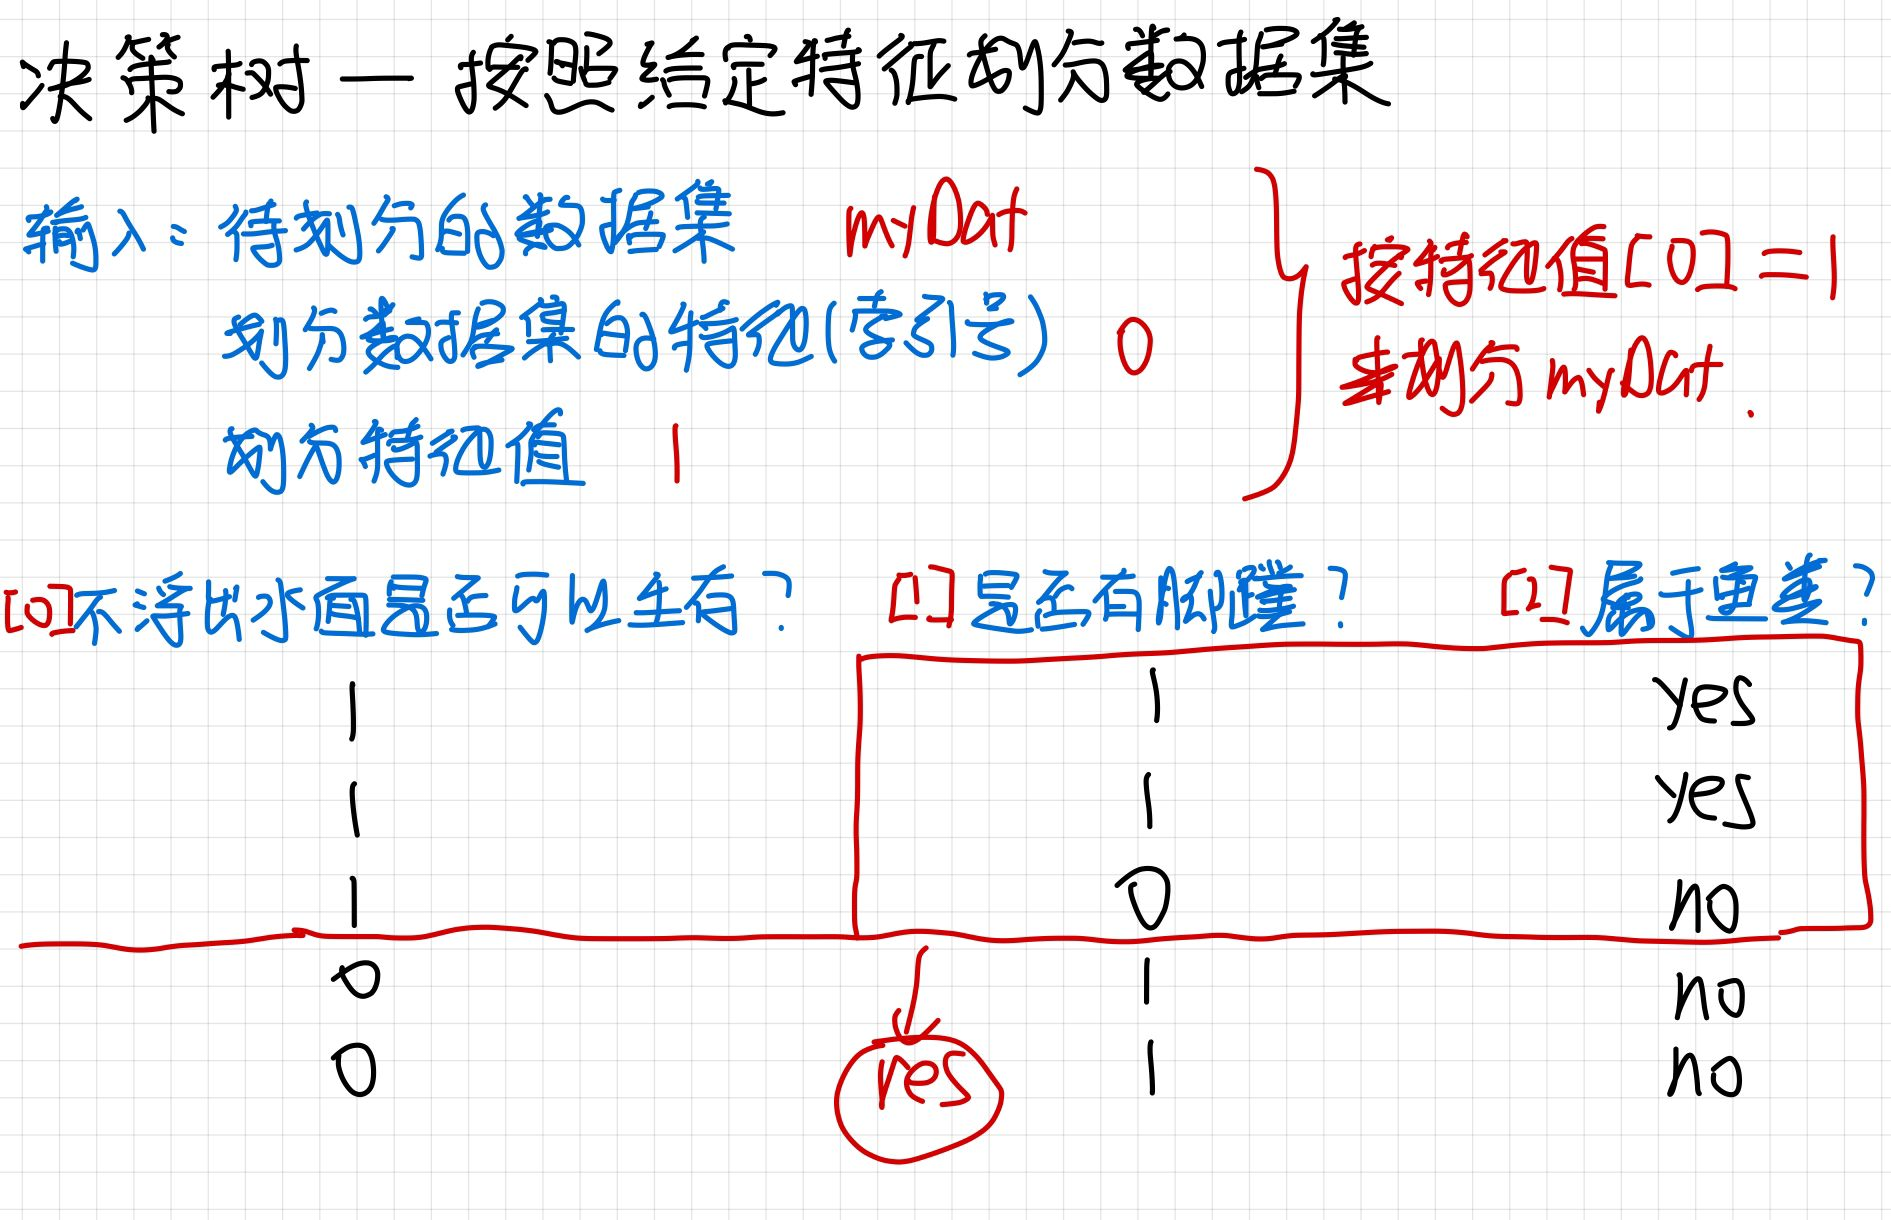 决策树 — 按照给定特征划分数据集
输入：待划分的数据集 myDat
划分数据集的特征(索引号) 0
划分特征值 1
按特征值[0] = 1
来划分 myDat.
[0]不浮出水面是否可以生存？ [1]是否有脚蹼？ [2]属于鱼类？
1 1 yes
1 1 yes
1 0 no
0 1 no
0 1 no
res